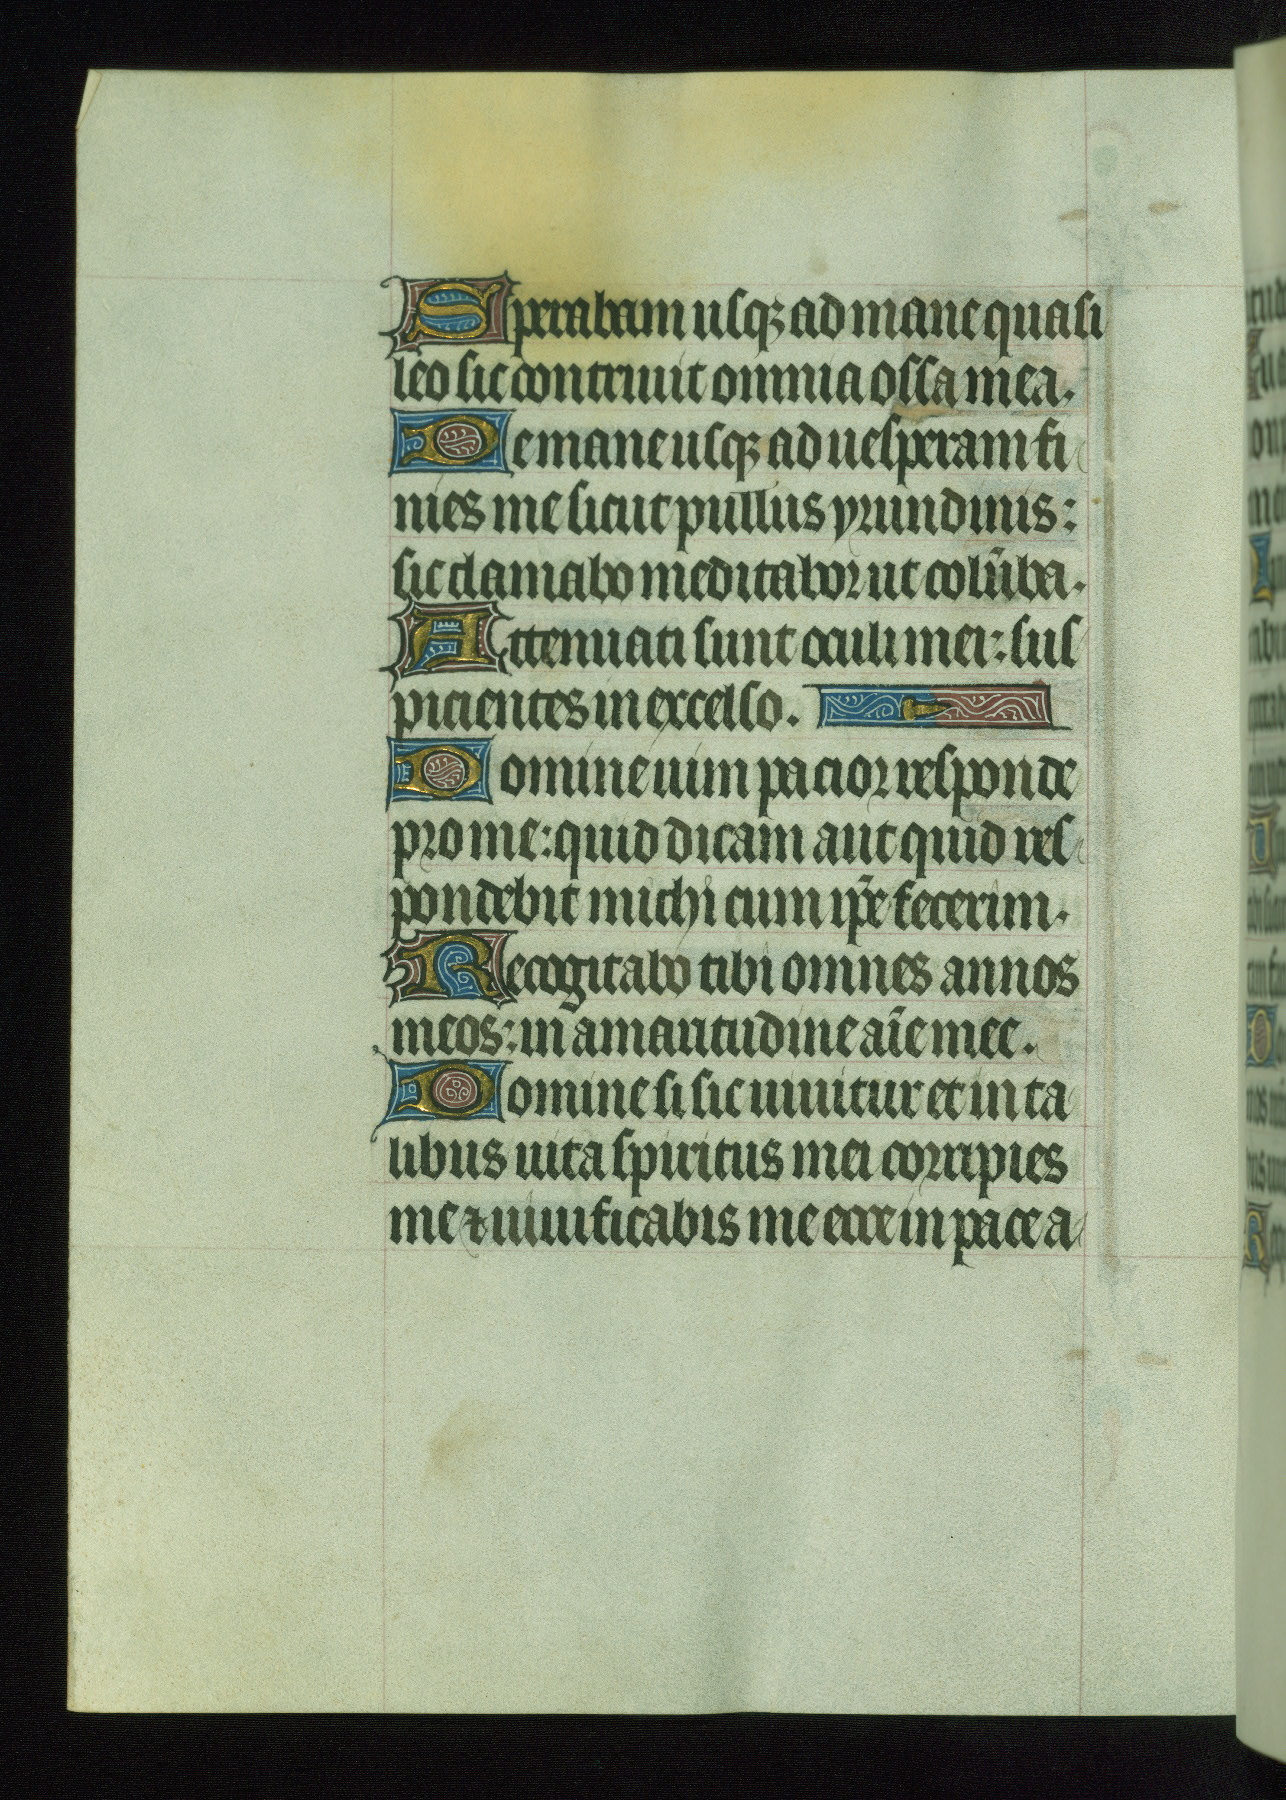 Sperabam usqꝫ ad mane quasi
leo sic contriuit omnia ossa mea.
De mane usqꝫ ad uesperam fi
nies me sicut pullus yrundinis:
sic clamabo meditabor ut colūba.
Attenuati sunt oculi mei: sus
picientes in excelso.
Domine uim pacior responde
pro me: quid dicam aut quid res
pondebit michi cum ip̄e fecerim.
Recogitabo tibi omnes annos
meos: in amaritudine aīe mee.
Domine si sic uiuitur et in ta
libus uita spiritus mei corripies
me ⁊ uiuificabis me ecce in pace a